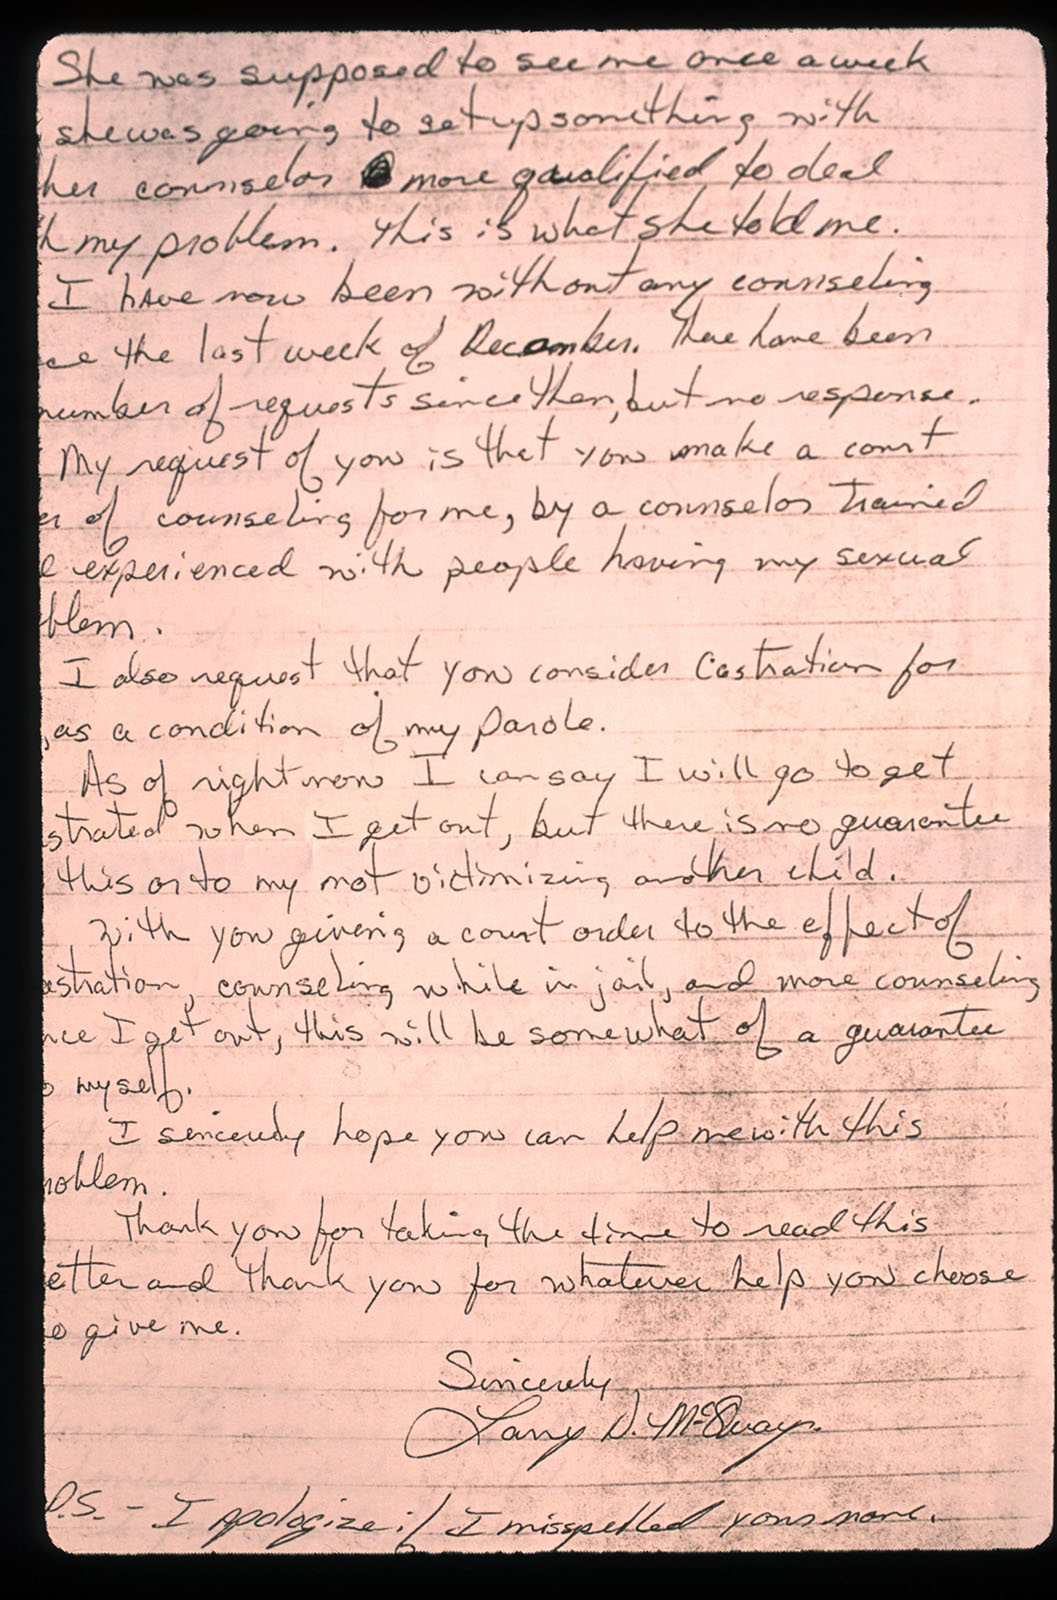 She was supposed to see me once a week
she was going to set up something with
her counselor more qaualified to deal
h my problem. This is what she told me.
I have now been without any counseling
ce the last week of December. There have been
number of requests since then, but no response.
My request of you is that you make a court
er of counseling for me, by a counselor trained
d experienced with people having my sexual
blem.
I also request that you consider Castration for
, as a condition of my Parole.
As of right now I can say I will go to get
strated when I get out, but there is no guarantee
this or to my not victimizing another child.
With you giving a court order to the effect of
astration, counseling while in jail, and more counseling
nce I get out, this will be somewhat of a guarantee
o myself.
I sincerely hope you can help me with this
roblem.
Thank you for taking the time to read this
etter and thank you for whatever help you choose
o give me.
Sincerely,
Larry D. McQuay.
P.S. - I apologize if I misspelled your name.